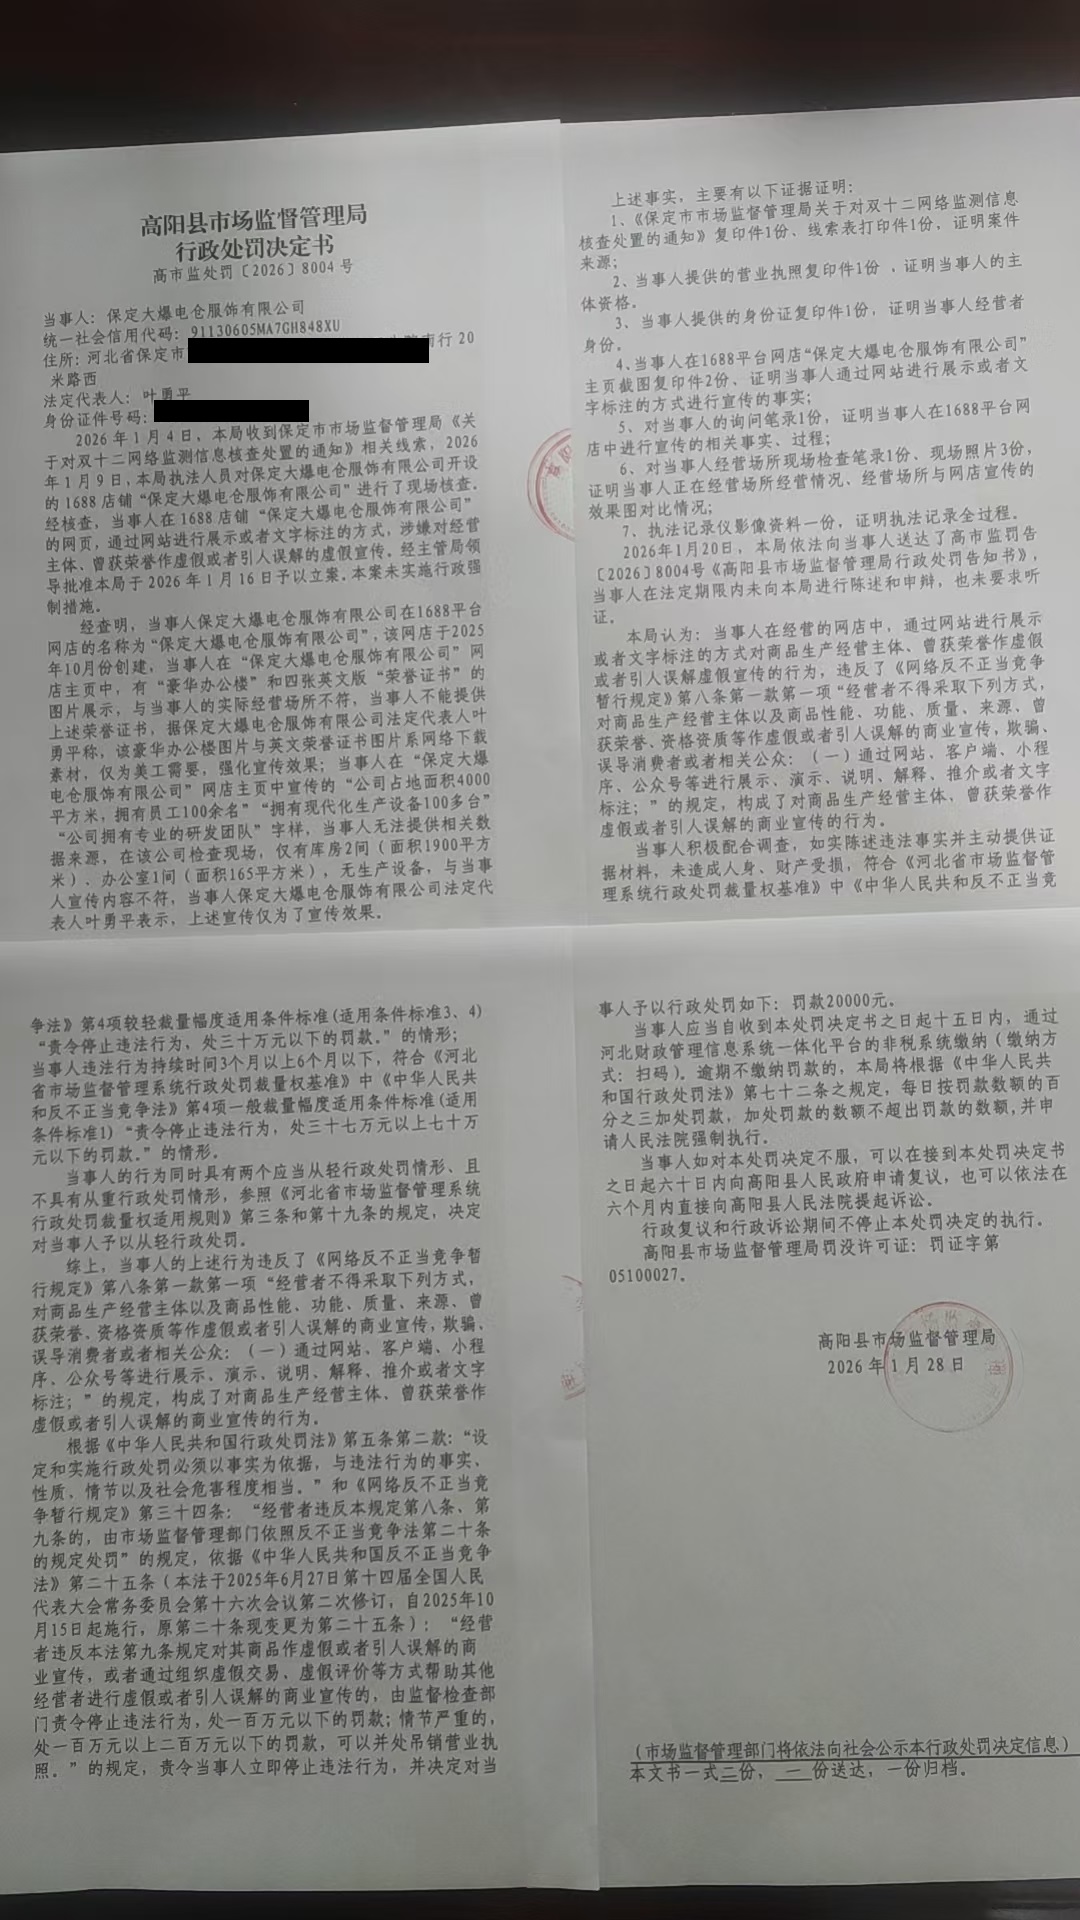 高阳县市场监督管理局
行政处罚决定书
高市监处罚〔2026〕8004号
当事人：保定大爆电仓服饰有限公司
统一社会信用代码：91130605MA7GH848XU
住所：河北省保定市
南行20
米路西
法定代表人：叶勇平
身份证件号码：
2026年1月4日，本局收到保定市市场监督管理局《关
于对双十二网络监测信息核查处置的通知》相关线索，2026
年1月9日，本局执法人员对保定大爆电仓服饰有限公司开设
的1688店铺“保定大爆电仓服饰有限公司”进行了现场核查。
经核查，当事人在1688店铺“保定大爆电仓服饰有限公司”
的网页，通过网站进行展示或者文字标注的方式，涉嫌对经营
主体、曾获荣誉作虚假或者引人误解的虚假宣传。经主管局领
导批准本局于2026年1月16日予以立案。本案未实施行政强
制措施。
经查明，当事人保定大爆电仓服饰有限公司在1688平台
网店的名称为“保定大爆电仓服饰有限公司”，该网店于2025
年10月份创建，当事人在“保定大爆电仓服饰有限公司”网
店主页中，有“豪华办公楼”和四张英文版“荣誉证书”的
图片展示，与当事人的实际经营场所不符，当事人不能提供
上述荣誉证书，据保定大爆电仓服饰有限公司法定代表人叶
勇平称，该豪华办公楼图片与英文荣誉证书图片系网络下载
素材，仅为美工需要，强化宣传效果；当事人在“保定大爆
电仓服饰有限公司”网店主页中宣传的“公司占地面积4000
平方米，拥有员工100余名”“拥有现代化生产设备100多台”
“公司拥有专业的研发团队”字样，当事人无法提供相关数
据来源，在该公司检查现场，仅有库房2间（面积1900平方
米）、办公室1间（面积165平方米），无生产设备，与当事
人宣传内容不符，当事人保定大爆电仓服饰有限公司法定代
表人叶勇平表示，上述宣传仅为了宣传效果。
上述事实，主要有以下证据证明：
1、《保定市市场监督管理局关于对双十二网络监测信息
核查处置的通知》复印件1份、线索表打印件1份，证明案件
来源；
2、当事人提供的营业执照复印件1份，证明当事人的主
体资格。
3、当事人提供的身份证复印件1份，证明当事人经营者
身份。
4、当事人在1688平台网店“保定大爆电仓服饰有限公司”
主页截图复印件2份，证明当事人通过网站进行展示或者文
字标注的方式进行宣传的事实；
5、对当事人的询问笔录1份，证明当事人在1688平台网
店中进行宣传的相关事实、过程；
6、对当事人经营场所现场检查笔录1份、现场照片3份，
证明当事人正在经营场所经营情况、经营场所与网店宣传的
效果图对比情况；
7、执法记录仪影像资料一份，证明执法记录全过程。
2026年1月20日，本局依法向当事人送达了高市监罚告
〔2026〕8004号《高阳县市场监督管理局行政处罚告知书》，
当事人在法定期限内未向本局进行陈述和申辩，也未要求听
证。
本局认为：当事人在经营的网店中，通过网站进行展示
或者文字标注的方式对商品生产经营主体、曾获荣誉作虚假
或者引人误解虚假宣传的行为，违反了《网络反不正当竞争
暂行规定》第八条第一款第一项“经营者不得采取下列方式，
对商品生产经营主体以及商品性能、功能、质量、来源、曾
获荣誉、资格资质等作虚假或者引人误解的商业宣传，欺骗、
误导消费者或者相关公众：（一）通过网站、客户端、小程
序、公众号等进行展示、演示、说明、解释、推介或者文字
标注；”的规定，构成了对商品生产经营主体、曾获荣誉作
虚假或者引人误解的商业宣传的行为。
当事人积极配合调查，如实陈述违法事实并主动提供证
据材料，未造成人身、财产受损，符合《河北省市场监督管
理系统行政处罚裁量权基准》中《中华人民共和反不正当竞
争法》第4项较轻裁量幅度适用条件标准(适用条件标准3、4)
“责令停止违法行为，处三十万元以下的罚款。”的情形；
当事人违法行为持续时间3个月以上6个月以下，符合《河北
省市场监督管理系统行政处罚裁量权基准》中《中华人民共
和反不正当竞争法》第4项一般裁量幅度适用条件标准(适用
条件标准1)“责令停止违法行为，处三十七万元以上七十万
元以下的罚款。”的情形。
当事人的行为同时具有两个应当从轻行政处罚情形、且
不具有从重行政处罚情形，参照《河北省市场监督管理系统
行政处罚裁量权适用规则》第三条和第十九条的规定，决定
对当事人予以从轻行政处罚。
综上，当事人的上述行为违反了《网络反不正当竞争暂
行规定》第八条第一款第一项“经营者不得采取下列方式，
对商品生产经营主体以及商品性能、功能、质量、来源、曾
获荣誉、资格资质等作虚假或者引人误解的商业宣传，欺骗、
误导消费者或者相关公众：（一）通过网站、客户端、小程
序、公众号等进行展示、演示、说明、解释、推介或者文字
标注；”的规定，构成了对商品生产经营主体、曾获荣誉作
虚假或者引人误解的商业宣传的行为。
根据《中华人民共和国行政处罚法》第五条第二款：“设
定和实施行政处罚必须以事实为依据，与违法行为的事实、
性质、情节以及社会危害程度相当。”和《网络反不正当竞
争暂行规定》第三十四条：“经营者违反本规定第八条、第
九条的，由市场监督管理部门依照反不正当竞争法第二十条
的规定处罚”的规定，依据《中华人民共和国反不正当竞争
法》第二十五条（本法于2025年6月27日第十四届全国人民
代表大会常务委员会第十六次会议第二次修订，自2025年10
月15日起施行，原第二十条现变更为第二十五条）：“经营
者违反本法第九条规定对其商品作虚假或者引人误解的商
业宣传，或者通过组织虚假交易、虚假评价等方式帮助其他
经营者进行虚假或者引人误解的商业宣传的，由监督检查部
门责令停止违法行为，处一百万元以下的罚款；情节严重的，
处一百万元以上二百万元以下的罚款，可以并处吊销营业执
照。”的规定，责令当事人立即停止违法行为，并决定对当
事人予以行政处罚如下：罚款20000元。
当事人应当自收到本处罚决定书之日起十五日内，通过
河北财政管理信息系统一体化平台的非税系统缴纳（缴纳方
式：扫码）。逾期不缴纳罚款的，本局将根据《中华人民共
和国行政处罚法》第七十二条之规定，每日按罚款数额的百
分之三加处罚款，加处罚款的数额不超出罚款的数额，并申
请人民法院强制执行。
当事人如对本处罚决定不服，可以在接到本处罚决定书
之日起六十日内向高阳县人民政府申请复议，也可以依法在
六个月内直接向高阳县人民法院提起诉讼。
行政复议和行政诉讼期间不停止本处罚决定的执行。
高阳县市场监督管理局罚没许可证：罚证字第
05100027。
高阳县市场监督管理局
2026年1月28日
（市场监督管理部门将依法向社会公示本行政处罚决定信息）
本文书一式二份，一份送达，一份归档。